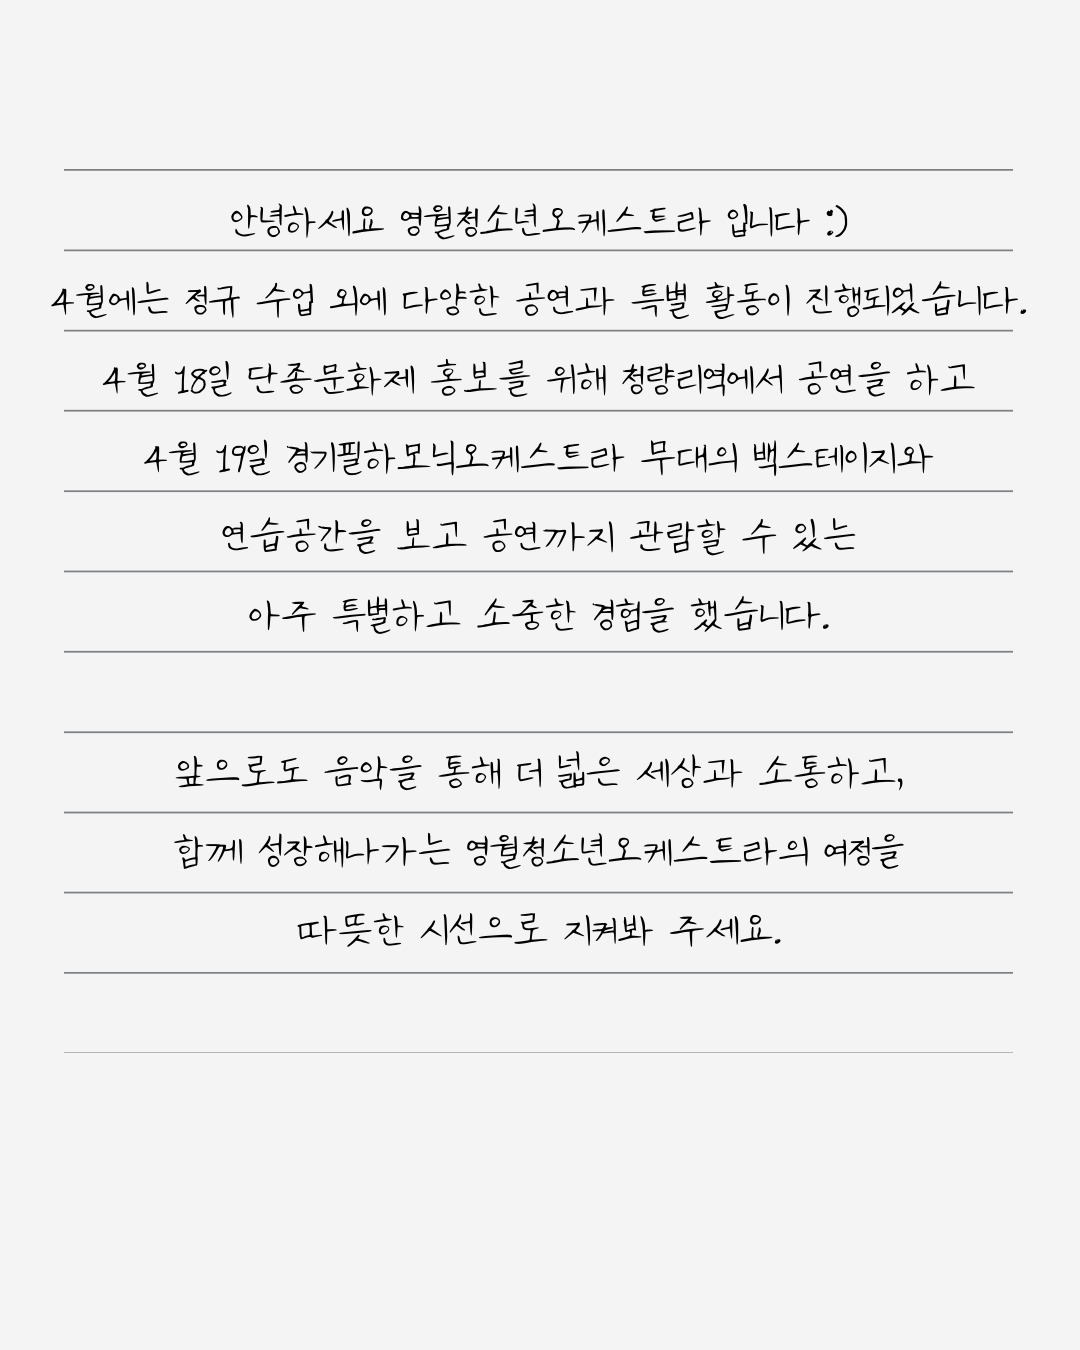 안녕하세요 영월청소년오케스트라 입니다 :)
4월에는 정규 수업 외에 다양한 공연과 특별 활동이 진행되었습니다.
4월 18일 단종문화제 홍보를 위해 청량리역에서 공연을 하고
4월 19일 경기필하모닉오케스트라 무대의 백스테이지와
연습공간을 보고 공연까지 관람할 수 있는
아주 특별하고 소중한 경험을 했습니다.
앞으로도 음악을 통해 더 넓은 세상과 소통하고,
함께 성장해나가는 영월청소년오케스트라의 여정을
따뜻한 시선으로 지켜봐 주세요.